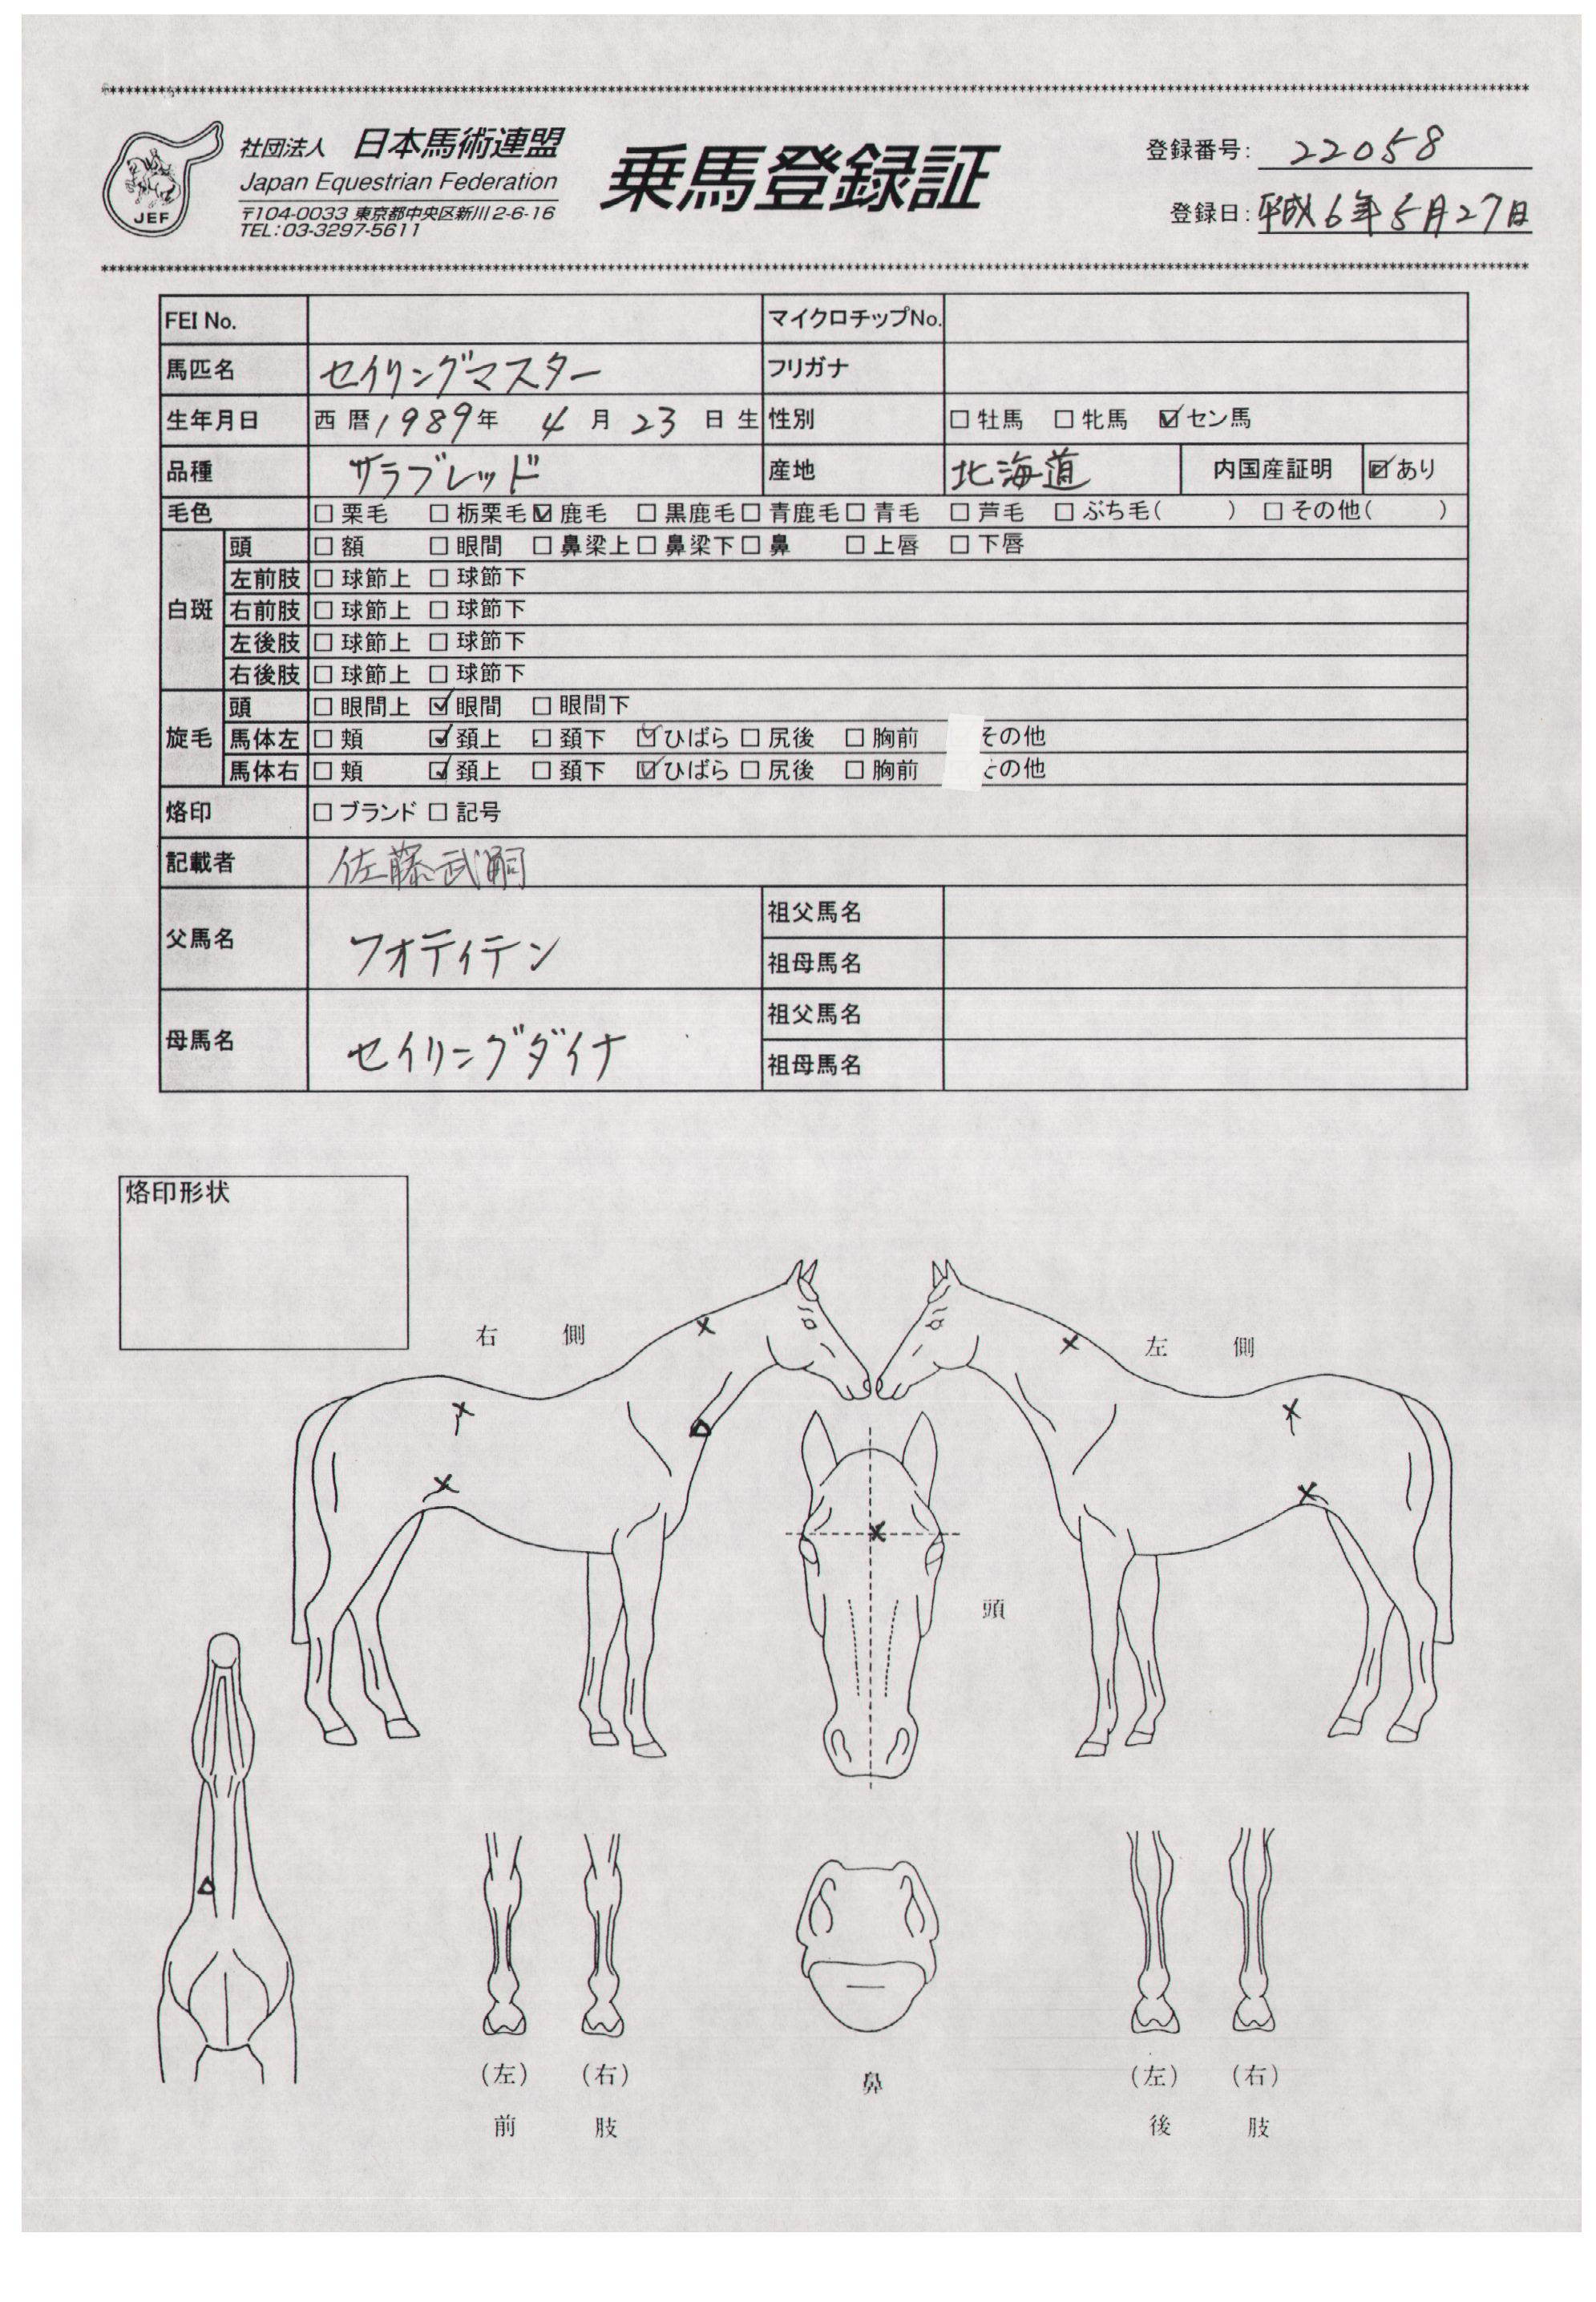 社団法人 日本馬術連盟
Japan Equestrian Federation
〒104-0033 東京都中央区新川2-6-16
TEL:03-3297-5611
JEF
乗馬登録証
登録番号: 22058
登録日: 平成6年5月27日
FEI No. マイクロチップNo.
馬匹名 セイリングマスター フリガナ
生年月日 西暦1989年 4月23日生 性別 □牡馬 □牝馬 ☑セン馬
品種 サラブレッド 産地 北海道 内国産証明 ☑あり
毛色 □栗毛 □栃栗毛 ☑鹿毛 □黒鹿毛 □青鹿毛 □青毛 □芦毛 □ぶち毛( ) □その他( )
白斑
頭 □額 □眼間 □鼻梁上 □鼻梁下 □鼻 □上唇 □下唇
左前肢 □球節上 □球節下
右前肢 □球節上 □球節下
左後肢 □球節上 □球節下
右後肢 □球節上 □球節下
旋毛
頭 □眼間上 ☑眼間 □眼間下
馬体左 □頬 ☑頚上 □頚下 ☑ひばら □尻後 □胸前 その他
馬体右 □頬 ☑頚上 □頚下 ☑ひばら □尻後 □胸前 その他
烙印 □ブランド □記号
記載者 佐藤武嗣
父馬名 フォティテン 祖父馬名
祖母馬名
母馬名 セイリングダイナ 祖父馬名
祖母馬名
烙印形状
右側
左側
頭
(左) (右)
前肢
鼻
(左) (右)
後肢